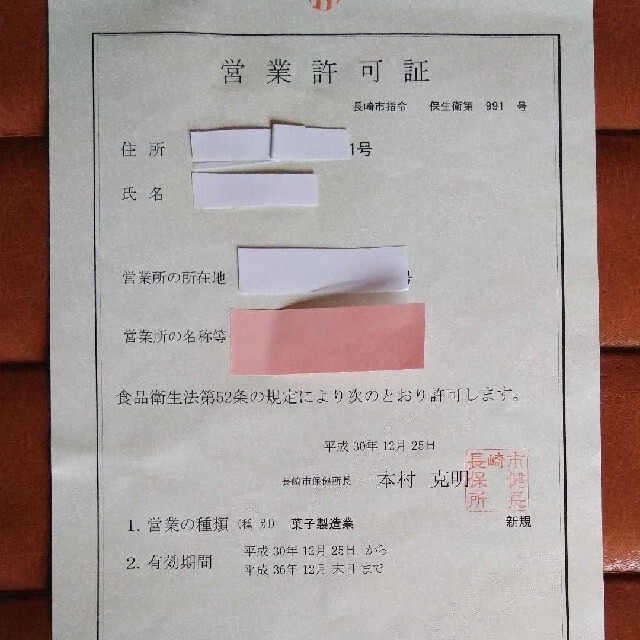 営業許可証
長崎市指令 保生衛第 991 号
住所 1号
氏名
営業所の所在地 号
営業所の名称等
食品衛生法第52条の規定により次のとおり許可します。
平成30年12月25日
長崎市保健所長 本村 克明
長崎市
保健
所長
1. 営業の種類 (種別) 菓子製造業 新規
2. 有効期間 平成30年12月25日 から
平成36年12月 末日まで